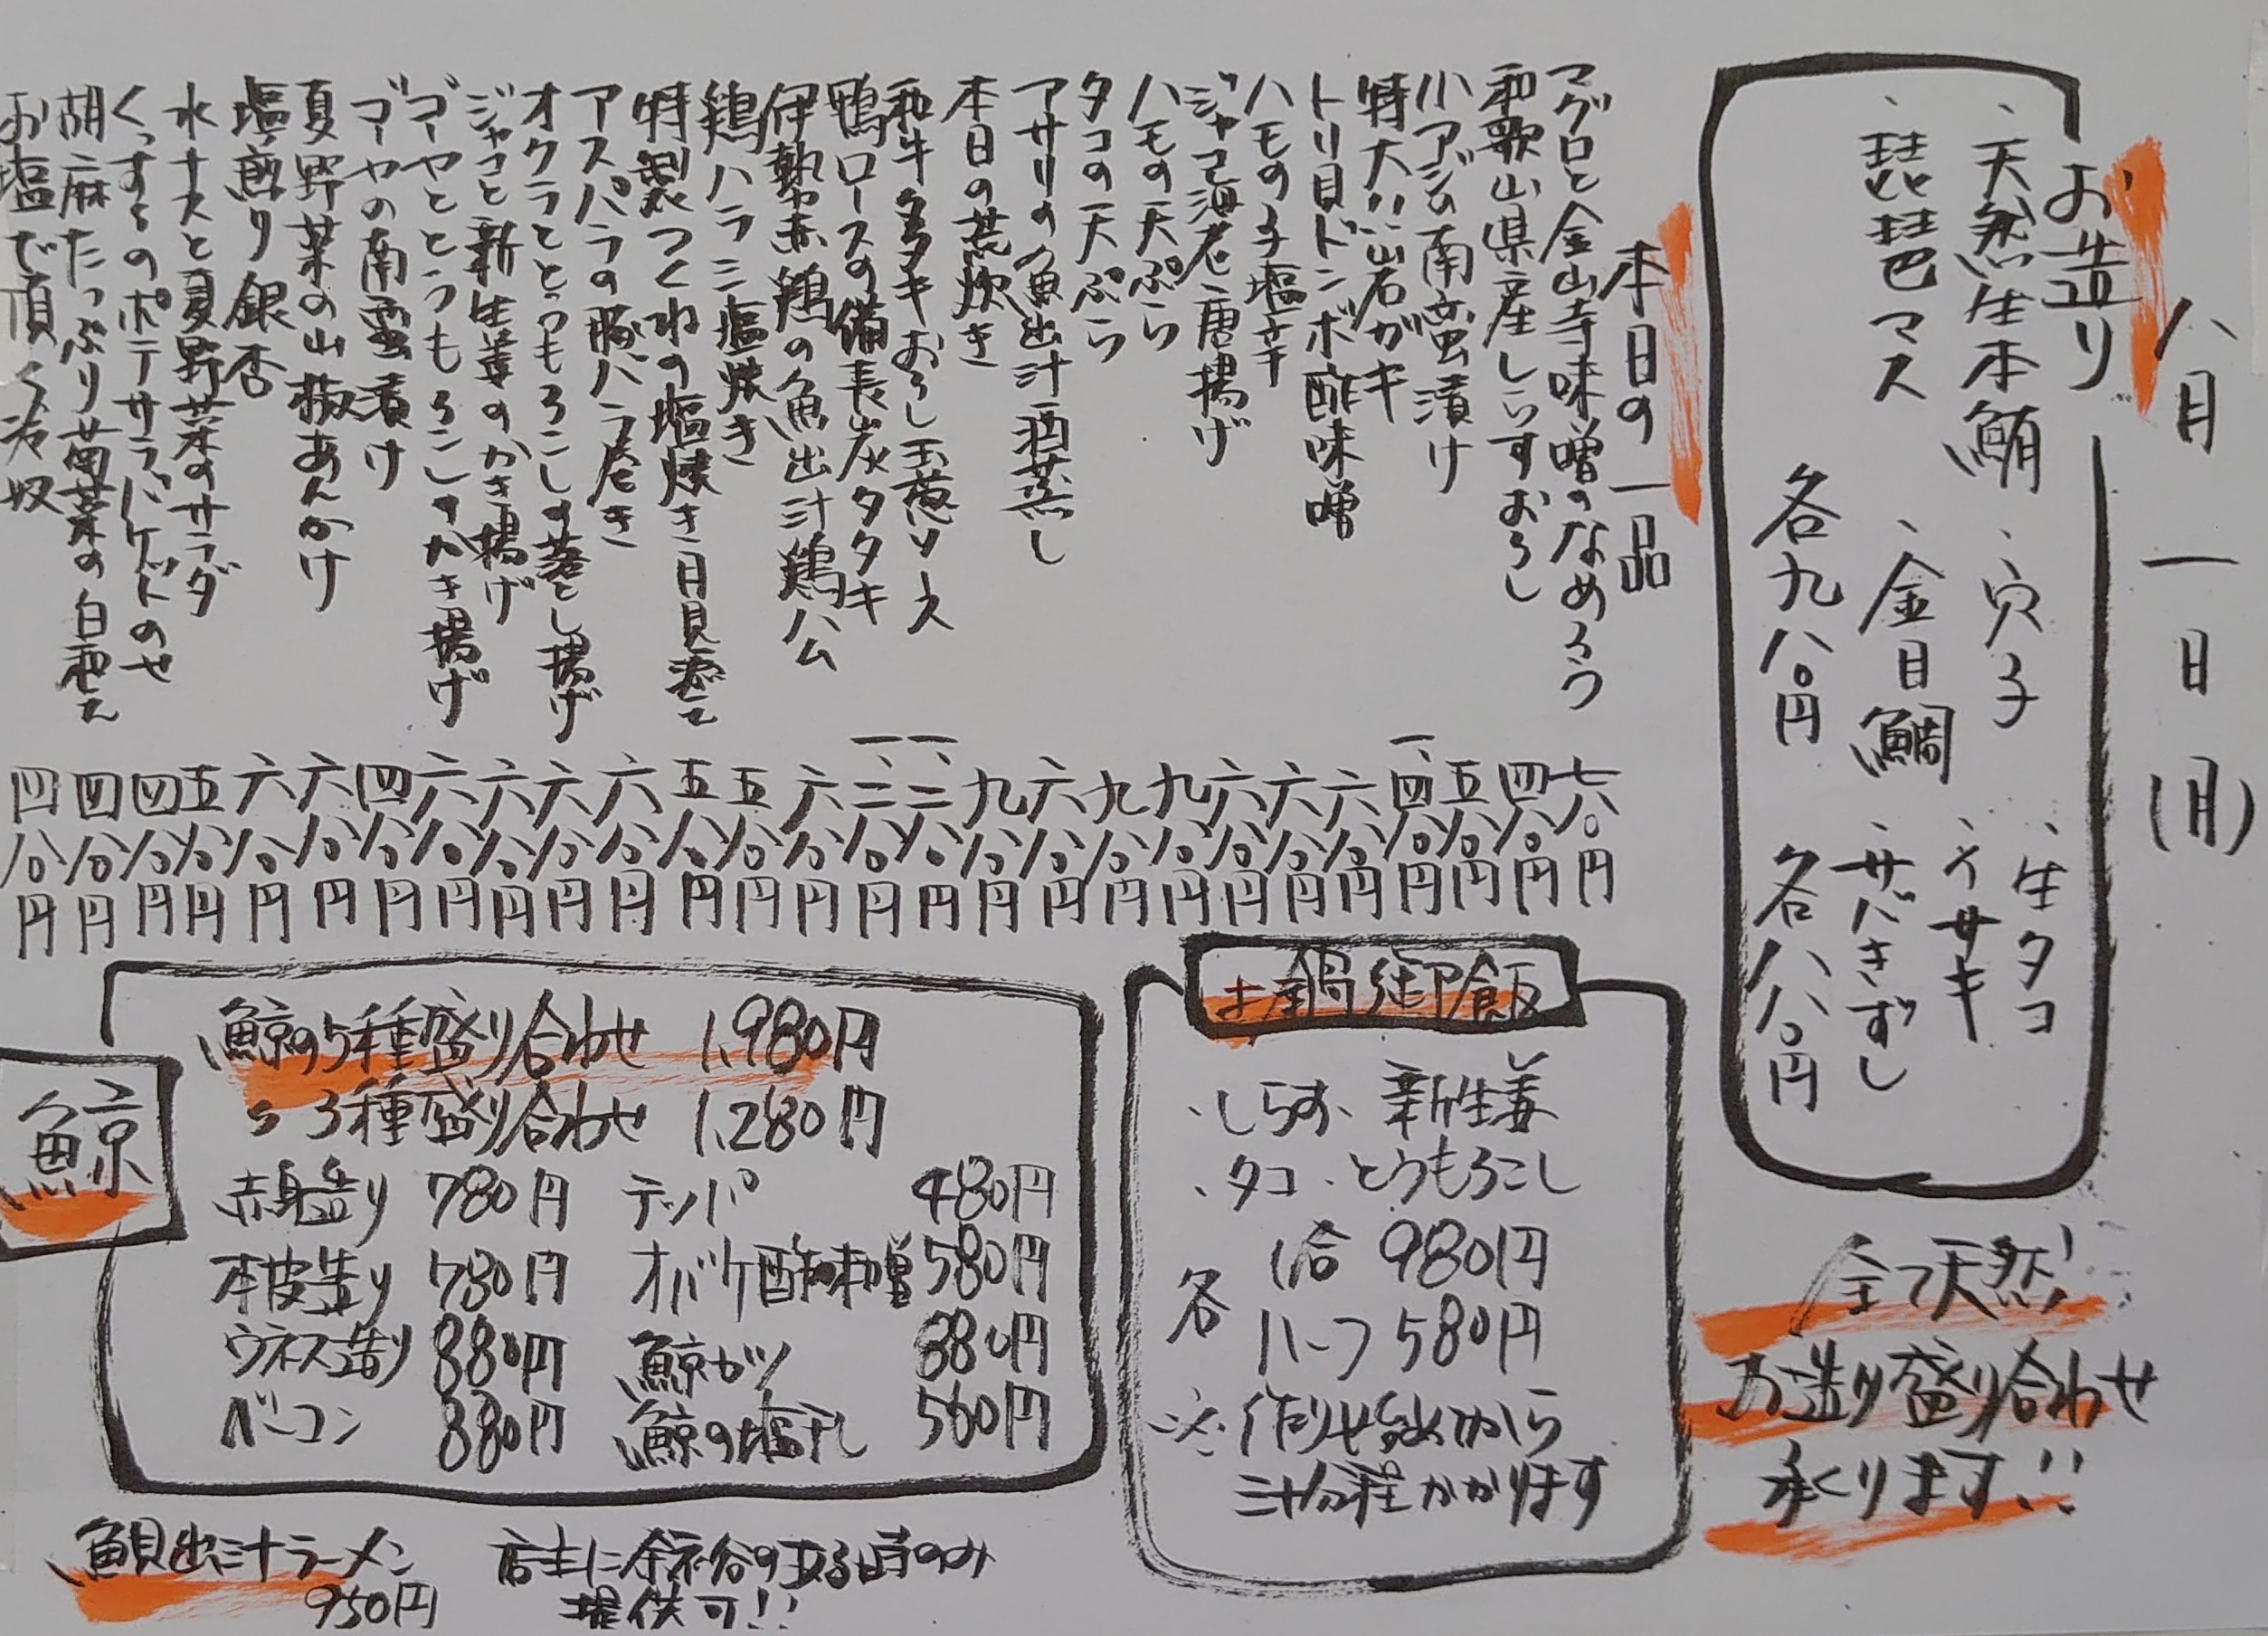 八月一日(月)
お造り
、天然生本鮪 、穴子 、生タコ
、琵琶マス 、金目鯛 、イサキ
、サバきずし
各九八〇円 各八八〇円
全て天然!
お造り盛り合わせ
承ります!!
本日の一品
マグロと金山寺味噌のなめろう 七八〇円
和歌山県産しらすおろし 四八〇円
小アジの南蛮漬け 五八〇円
特大!!岩ガキ 一、四八〇円
トリ貝ドンボ酢味噌 六八〇円
ハモの子塩辛 六八〇円
ジャコ海老唐揚げ 六八〇円
ハモの天ぷら 九八〇円
タコの天ぷら 九八〇円
アサリの魚出汁酒蒸し 六八〇円
本日の荒炊き 九八〇円
和牛タタキおろし玉葱ソース 一、二八〇円
鴨ロースの備長炭タタキ 一、二八〇円
伊勢赤鶏の魚出汁鶏ハム 六八〇円
鶏ハラミ塩焼き 五八〇円
特製つくねの塩焼き月見添て 五八〇円
アスパラの豚バラ巻き 六八〇円
オクラととうもろこしの落とし揚げ 六八〇円
ジャコと新生姜のかき揚げ 六八〇円
ゴーヤととうもろこしのかき揚げ 六八〇円
ゴーヤの南蛮漬け 四八〇円
夏野菜の山椒あんかけ 六八〇円
塩煎り銀杏 六八〇円
水ナスと夏野菜のサラダ 五八〇円
くんすものポテサラバケットのせ 四八〇円
胡麻たっぷり菊菜の白和え 四八〇円
お塩で頂く冷奴 四八〇円
土鍋御飯
、しらす、新生姜
、タコ、とうもろこし
各 1合 980円
ハーフ 580円
※作りお出しから
三十分程かかります
鯨
鯨の5種盛り合わせ 1,980円
〃 3種盛り合わせ 1,280円
赤身造り 780円 テッパ 480円
本皮造り 780円 オバケ酢味噌 580円
ウネス造り 880円 鯨カツ 880円
ベーコン 880円 鯨の塩干し 560円
、鯛出汁ラーメン
950円
店主に余裕の有る時のみ
提供可!!